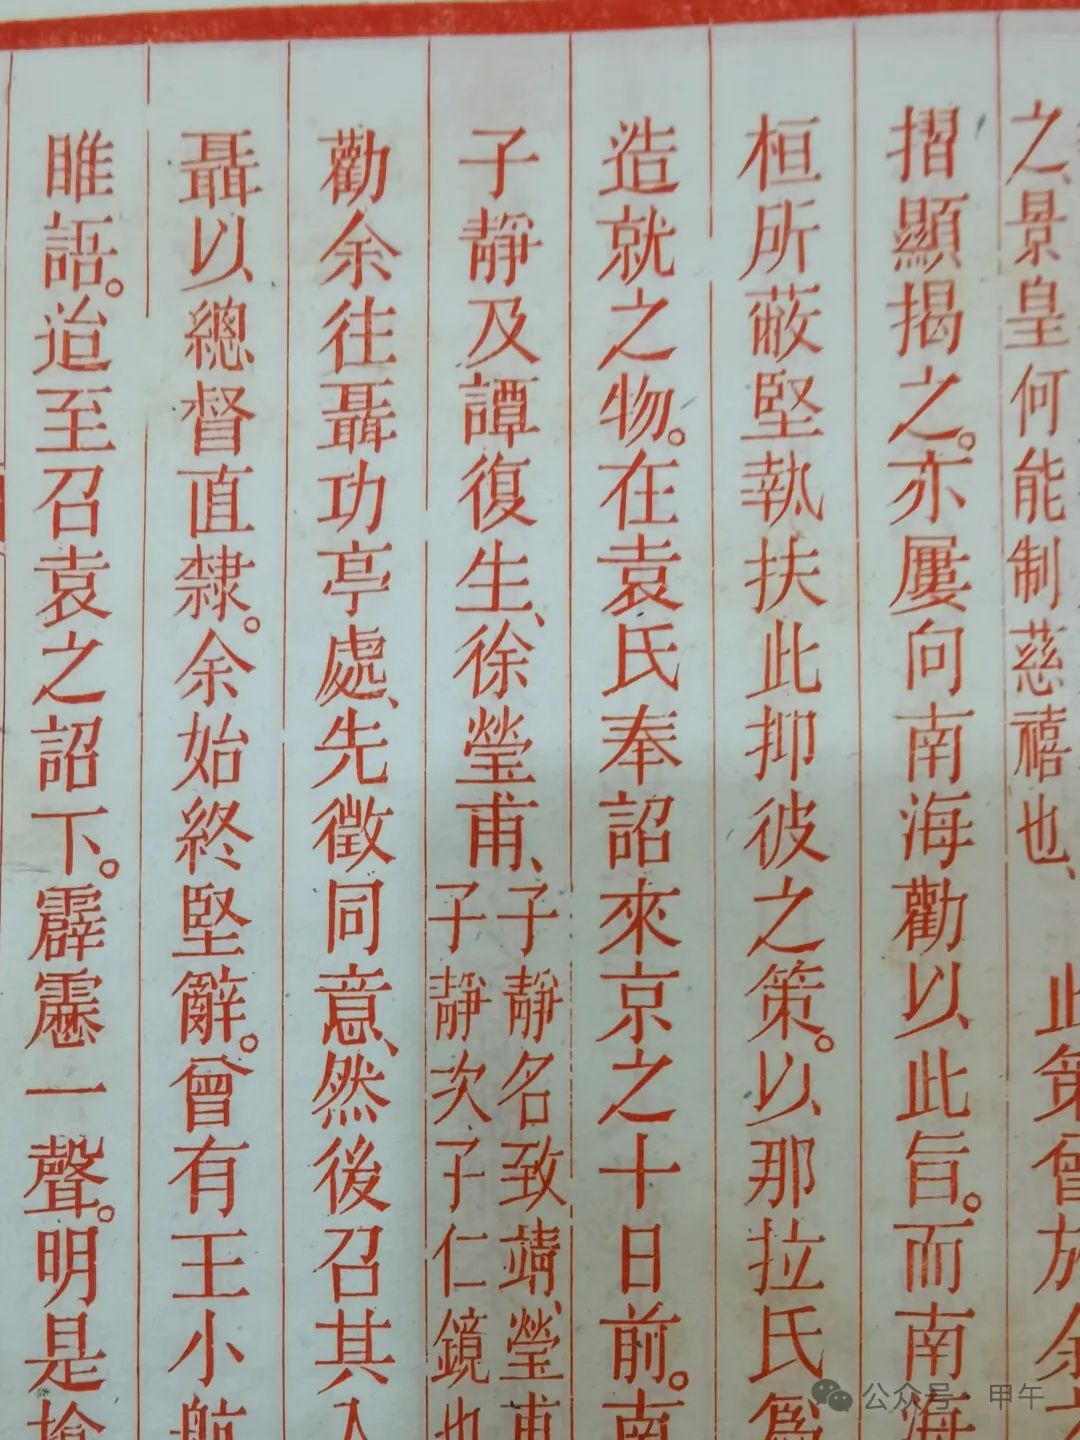 之、景皇何能制慈禧也、　此策曾於余
摺顯揭之。亦屢向南海勸以、此旨。而南海
桓所蔽堅執扶此抑彼之策。以、那拉氏爲
造就之物。在袁氏奉詔來京之十日前。南
子靜及譚復生、徐瑩甫、子靜名致靖、瑩甫
子靜次子仁鏡也
勸余往聶功亭處、先徵同意、然後召其入
聶以、總督直隸。余始終堅辭。曾有王小航
睢語。迨至召袁之詔下。霹靂一聲。明是搶
公众号 甲午